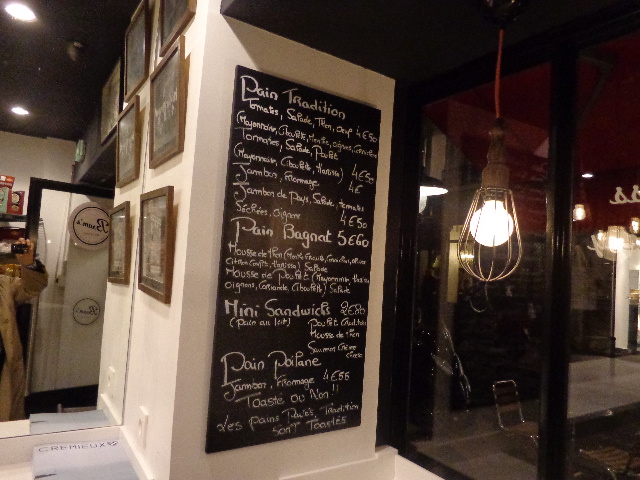 Pain Tradition
Tomates, Salade, Thon, Oeuf 4€50
(Mayonnaise, Ciboulette, Menthe, oignons,
Tomates, Salade, Poulet
(Mayonnaise, Ciboulette, Harissa) 4€50
Jambon, Fromage 4€
Jambon de Pays, Salade, tomates
Séchées, Oignons 4€50
Pain Bagnat 5€60
Mousse de thon
Citron Confit, Harissa) Salade
Mousse de poulet (Mayonnaise, Harissa
oignons, Coriandre, Ciboulette) Salade
Mini Sandwichs 2€80
(Pain au lait) Poulet Tradition
Mousse de thon
Saumon Crème
Pain Poilane
Jambon, Fromage
Toasté ou Non!!
Les pains Tradition
Sont Toastés
CREMIEUX